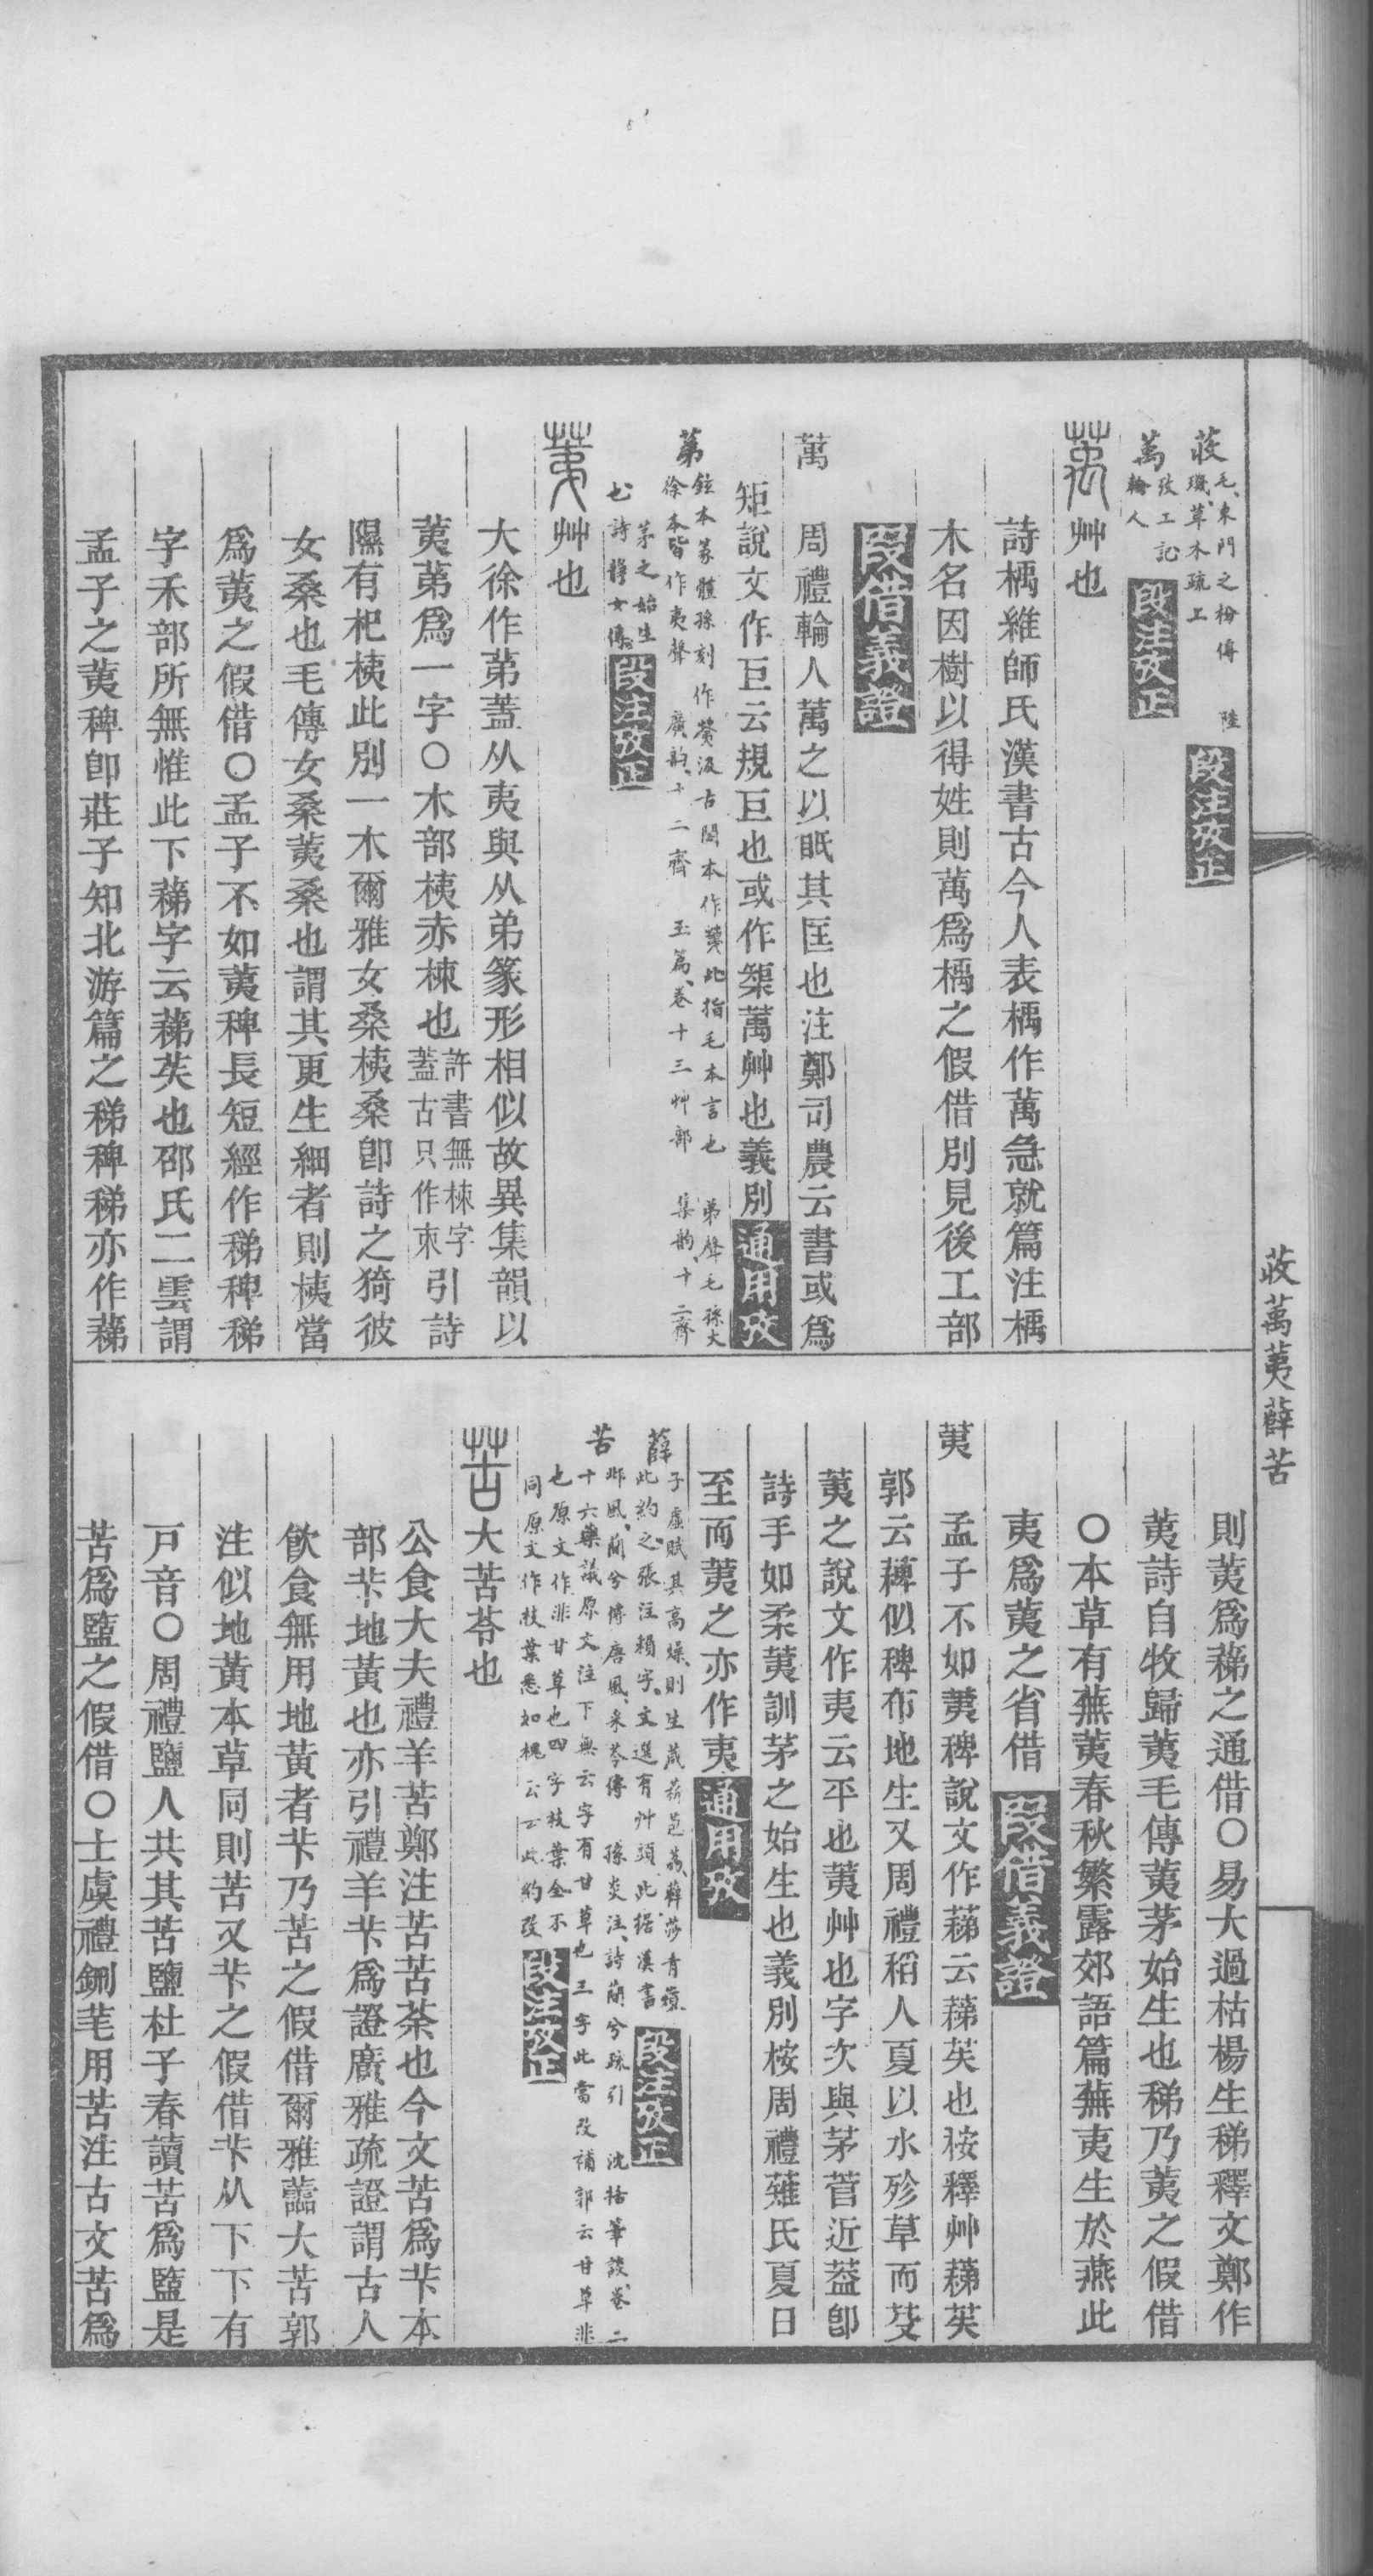 荍萬荑薜苦
荍 毛、東門之枌傳　陸
璣、草木疏工　段注攷正
萬 攷工記
輪人　段注攷正
萬 艸也
詩楀維師氏漢書古今人表楀作萬急就篇注楀
木名因樹以得姓則萬爲楀之假借別見後工部
叚借義證
萬　周禮輪人萬之以眡其匡也注鄭司農云書或爲
矩說文作巨云規巨也或作榘萬艸也義別 通用攷
荑 鉉本篆體孫刻作荑汲古閣本作荑此指毛本言也　弟聲毛孫大
徐本皆作夷聲　廣韵、十二齊　玉篇、卷十三艸部　集韵、十二齊
茅之始生
也 詩靜女傳 段注攷正
荑 艸也
大徐作苐蓋从夷與从弟篆形相似故異集韻以
荑苐爲一字〇木部桋赤棟也許書無棟字蓋古只作朿引詩
隰有杞桋此別一木爾雅女桑桋桑卽詩之猗彼
女桑也毛傳女桑荑桑也謂其更生細者則桋當
爲荑之假借〇孟子不如荑稗長短經作稊稗稊
字禾部所無惟此下蕛字云蕛苵也邵氏二雲謂
孟子之荑稗卽莊子知北游篇之稊稗稊亦作蕛
則荑爲蕛之通借〇易大過枯楊生稊釋文鄭作
荑詩自牧歸荑毛傳荑茅始生也稊乃荑之假借
〇本草有蕪荑春秋繁露郊語篇蕪夷生於燕此
夷爲荑之省借　叚借義證
荑　孟子不如荑稗說文作蕛云蕛苵也桉釋艸蕛苵
郭云蕛似稗布地生又周禮稻人夏以水殄草而芟
荑之說文作夷云平也荑艸也字次與茅菅近葢卽
詩手如柔荑訓茅之始生也義別桉周禮薙氏夏日
至而荑之亦作夷 通用攷
薜 子虛賦、其高燥、則生葴菥苞荔、薜莎青薠、
此約之、張注賴字、文選有艸頭、此據漢書　段注攷正
苦 邶風、簡兮傳唐風、采苓傳　孫炎注、詩簡兮疏引　沈括筆談、卷二
十六藥議原文注下無云字有甘草也三字此當改補郭云甘草非
也原文作非甘草也四字枝葉全不
同原文作枝葉悉如槐云云此約改　段注攷正
苦 大苦苓也
公食大夫禮羊苦鄭注苦苦荼也今文苦爲芐本
部芐地黃也亦引禮羊芐爲證廣雅疏證謂古人
飮食無用地黃者芐乃苦之假借爾雅蘦大苦郭
注似地黃本草同則苦又芐之假借芐从下下有
戸音〇周禮鹽人共其苦鹽杜子春讀苦爲盬是
苦爲盬之假借〇士虞禮鉶芼用苦注古文苦爲